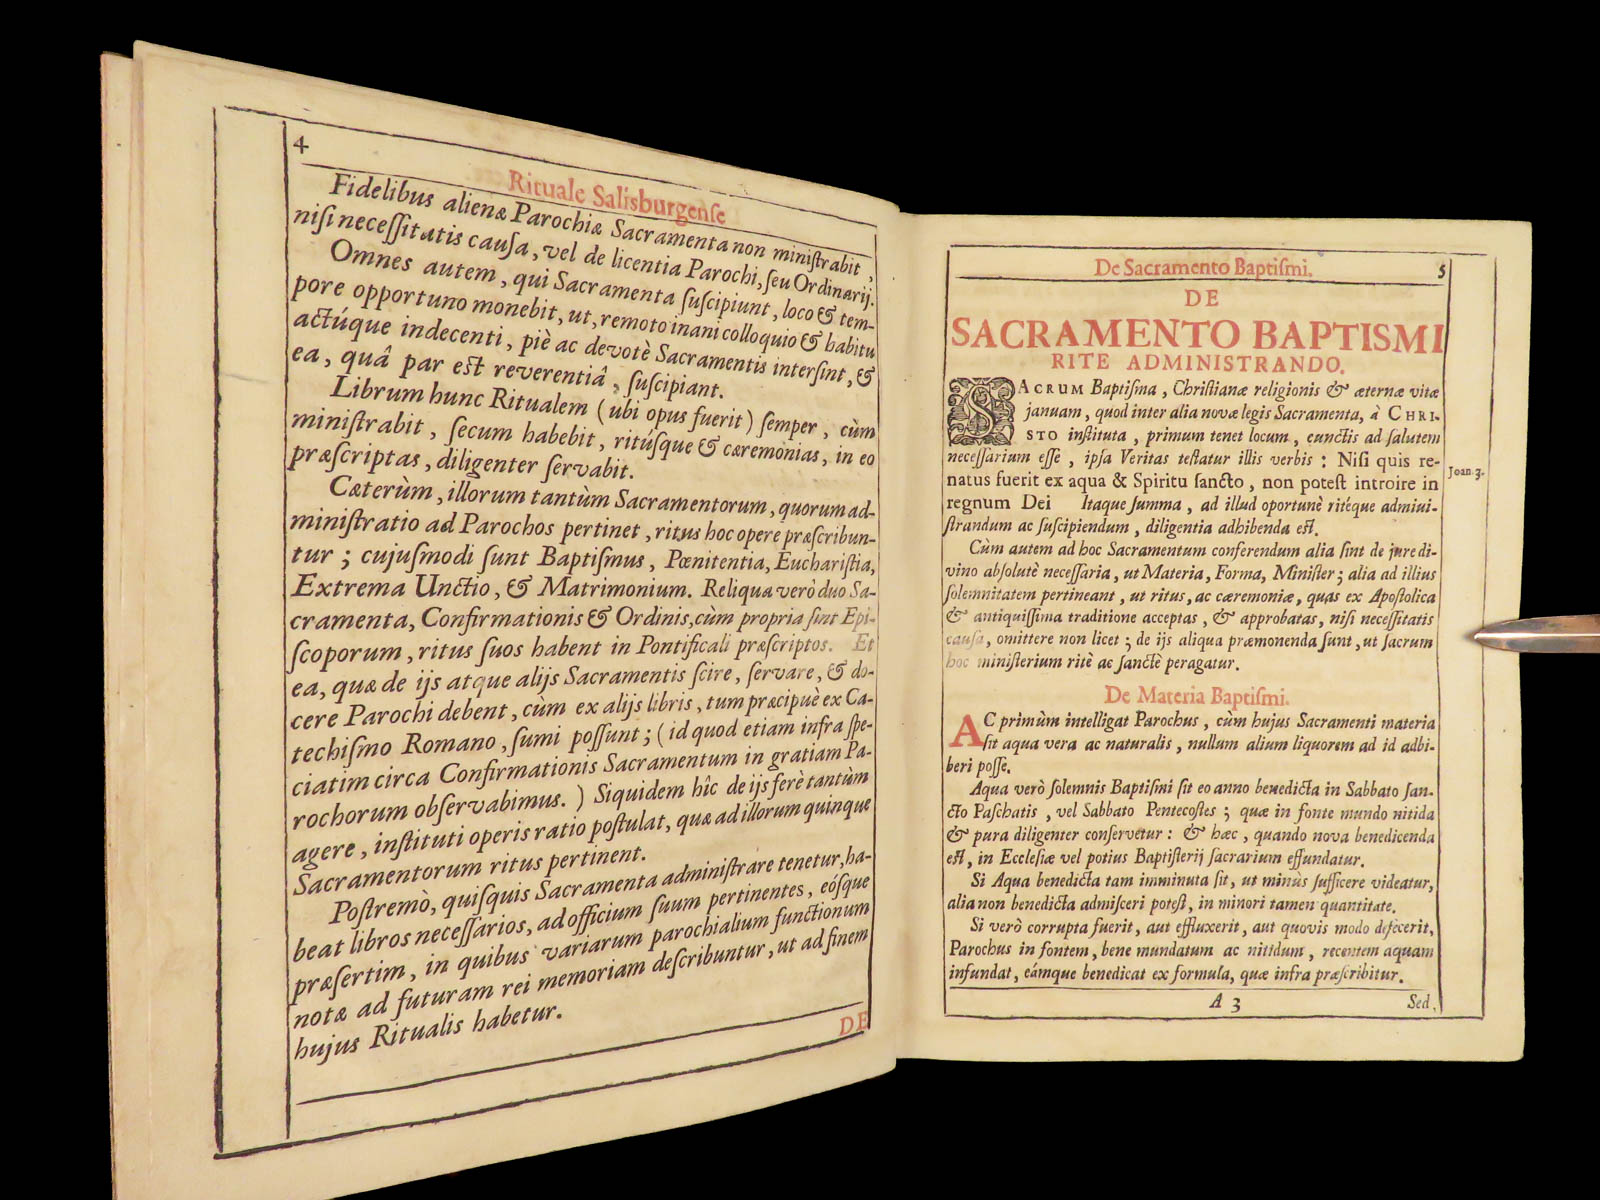 4
Rituale Salisburgenſe
Fidelibus alienæ Parochiæ Sacramenta non miniſtrabit,
niſi neceſſitatis cauſa, vel de licentia Parochi, ſeu Ordinarij.
Omnes autem, qui Sacramenta ſuſcipiunt, loco & tem-
pore opportuno monebit, ut, remoto inani colloquio & habitu
actúque indecenti, piè ac devotè Sacramentis interſint, &
ea, quâ par eſt reverentiâ, ſuſcipiant.
Librum hunc Ritualem (ubi opus fuerit) ſemper, cùm
miniſtrabit, ſecum habebit, ritúſque & cæremonias, in eo
præſcriptas, diligenter ſervabit.
Cæterùm, illorum tantùm Sacramentorum, quorum ad-
miniſtratio ad Parochos pertinet, ritus hoc opere præſcribun-
tur; cujuſmodi ſunt Baptiſmus, Pœnitentia, Euchariſtia,
Extrema Unctio, & Matrimonium. Reliqua verò duo Sa-
cramenta, Confirmationis & Ordinis, cùm propria ſint Epi-
ſcoporum, ritus ſuos habent in Pontificali præſcriptos. Et
ea, quæ de ijs atque alijs Sacramentis ſcire, ſervare, & do-
cere Parochi debent, cùm ex alijs libris, tum præcipuè ex Ca-
techiſmo Romano, ſumi poſſunt; (id quod etiam infra ſpe-
ciatim circa Confirmationis Sacramentum in gratiam Pa-
rochorum obſervabimus.) Siquidem hîc de ijs ferè tantùm
agere, inſtituti operis ratio poſtulat, quæ ad illorum quinque
Sacramentorum ritus pertinent.
Poſtremò, quiſquis Sacramenta adminiſtrare tenetur, ha-
beat libros neceſſarios, ad officium ſuum pertinentes, eóſque
præſertim, in quibus variarum parochialium functionum
notæ ad futuram rei memoriam deſcribuntur, ut ad finem
hujus Ritualis habetur.
DE
De Sacramento Baptiſmi.
5
DE
SACRAMENTO BAPTISMI
RITE ADMINISTRANDO.
SACRUM Baptiſma, Chriſtianæ religionis & æternæ vitæ
januam, quod inter alia novæ legis Sacramenta, à CHRI-
STO inſtituta, primum tenet locum, cunctis ad ſalutem
neceſſarium eſſe, ipſa Veritas teſtatur illis verbis: Niſi quis re-
natus fuerit ex aqua & Spiritu ſancto, non poteſt introire in
regnum Dei Itaque ſumma, ad illud oportunè ritéque admiui-
ſtrandum ac ſuſcipiendum, diligentia adhibenda eſt.
Joan 3.
Cùm autem ad hoc Sacramentum conferendum alia ſint de jure di-
vino abſolutè neceſſaria, ut Materia, Forma, Miniſter; alia ad illius
ſolemnitatem pertineant, ut ritus, ac cæremoniæ, quas ex Apoſtolica
& antiquiſſima traditione acceptas, & approbatas, niſi neceſſitatis
cauſa, omittere non licet; de ijs aliqua præmonenda ſunt, ut ſacrum
hoc miniſterium ritè ac ſanctè peragatur.
De Materia Baptiſmi.
AC primùm intelligat Parochus, cùm hujus Sacramenti materia
ſit aqua vera ac naturalis, nullum alium liquorem ad id adbi-
beri poſſe.
Aqua verò ſolemnis Baptiſmi ſit eo anno benedicta in Sabbato ſan-
cto Paſchatis, vel Sabbato Pentecoſtes; quæ in fonte mundo nitida
& pura diligenter conſervetur: & hæc, quando nova benedicenda
eſt, in Eccleſiæ vel potius Baptiſterij ſacrarium effundatur.
Si Aqua benedicta tam imminuta ſit, ut minùs ſufficere videatur,
alia non benedicta admiſceri poteſt, in minori tamen quantitate.
Si verò corrupta fuerit, aut effluxerit, aut quovis modo defecerit,
Parochus in fontem, bene mundatum ac nitidum, recentem aquam
infundat, eámque benedicat ex formula, quæ infra præſcribitur.
A 3
Sed,